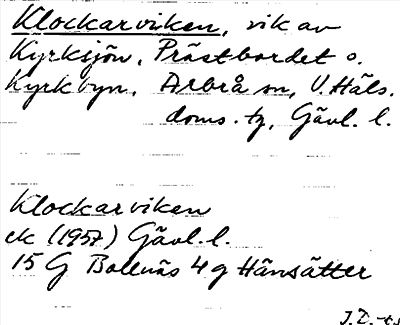 Klockarviken, vik av
Kyrksjön, Prästbordet o.
Kyrkbyn, Arbrå sn, V. Häls.
doms. tg, Gävl. l.
Klockarviken
ek (1957) Gävl. l.
15 G Bollnäs 4 g Hänsätter
J.D.-ts